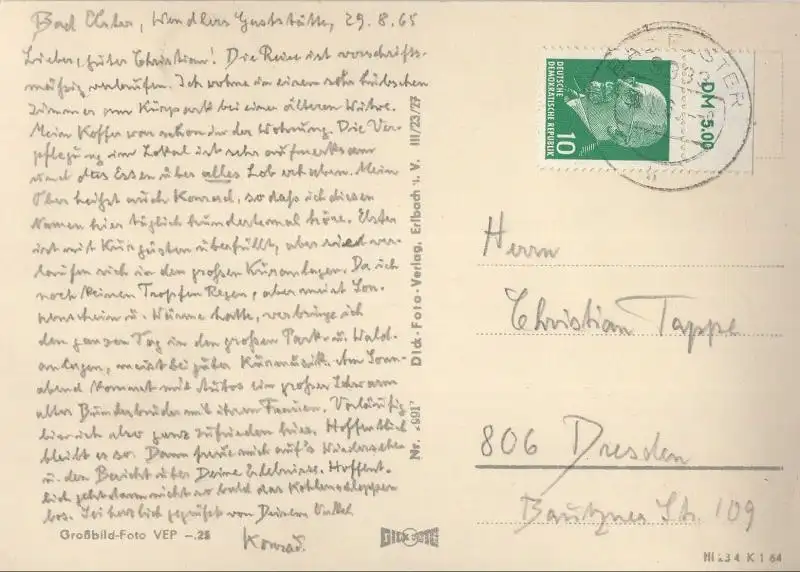 Bad Elster, Wendlers Gaststätte, 29.8.65
Lieber, guter Christian! Die Reise ist vorschrifts-
mäßig verlaufen. Ich wohne in einem sehr hübschen
Zimmer am Kurpark bei einer älteren Witwe.
Mein Koffer war schon in der Wohnung. Die Ver-
pflegung im Lokal ist sehr aufmerksam
und das Essen über alles Lob erhaben. Mein
Ober heißt auch Konrad, so daß ich diesen
Namen hier täglich hundertemal höre. Elster
ist mit Kurgästen überfüllt, aber sie ver-
laufen sich in den großen Kuranlagen. Da ich
noch keinen Tropfen Regen, aber meist Son-
nenschein u. Wärme hatte, verbringe ich
den ganzen Tag in den großen Park u. Wald-
anlagen, meist bei guter Kurmusik. Am Sonn-
abend kommt mit Autos ein großer Schwarm
alter Bundesbrüder mit ihren Frauen. Vorläufig
bin ich also ganz zufrieden hier. Hoffentlich
bleibt es so. Dann freue mich auf's Wiedersehen
u. den Bericht über Deine Erlebnisse. Hoffent-
lich geht dann nicht so bald das Kohlenschleppen
los. Sei herzlich gegrüßt von Deinem Onkel
Konrad.
Großbild-Foto VEP -.25
Dick-Foto-Verlag, Erlbach i. V. III/23/27
DEUTSCHE
DEMOKRATISCHE REPUBLIK
10
DM 5.00
BAD ELSTER
Herrn
Christian Tappe
806 Dresden
Bautzner Str. 109
III 23 4 K 1 64